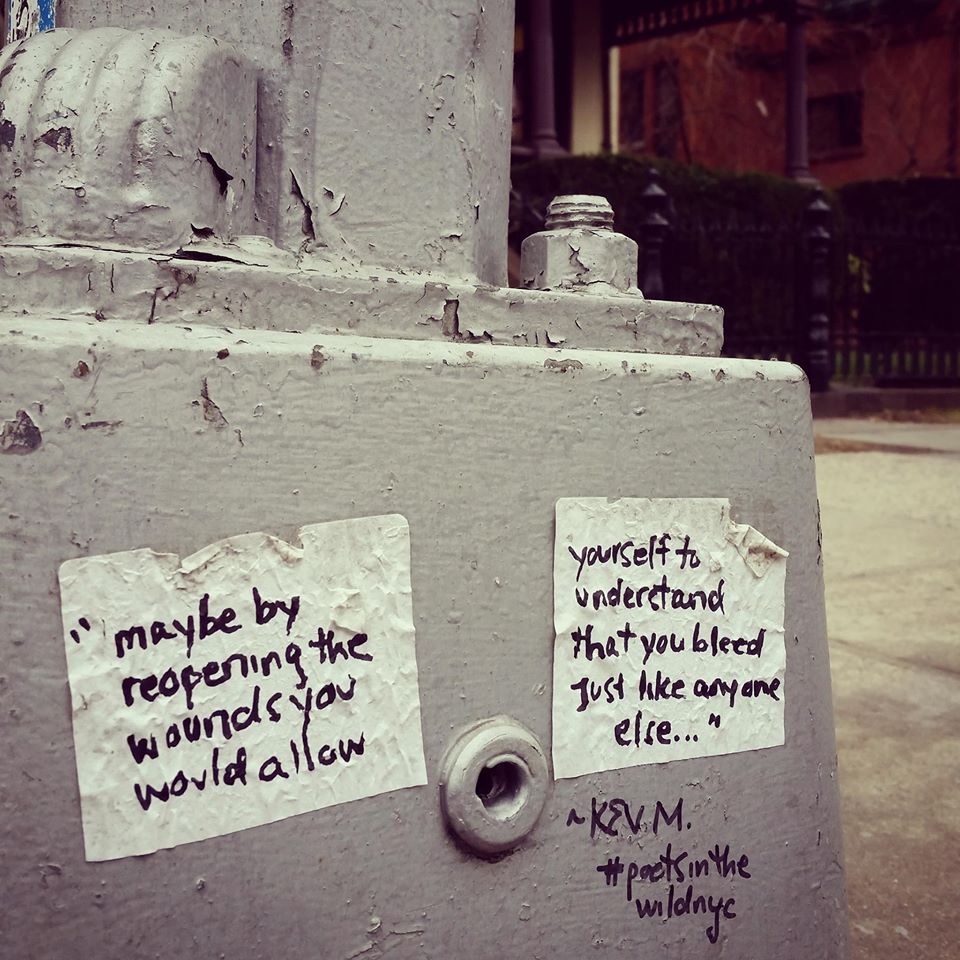 " maybe by
reopening the
wounds you
would allow
yourself to
understand
that you bleed
Just like anyone
else..."
~KEV M.
#poetsinthe
wildnyc